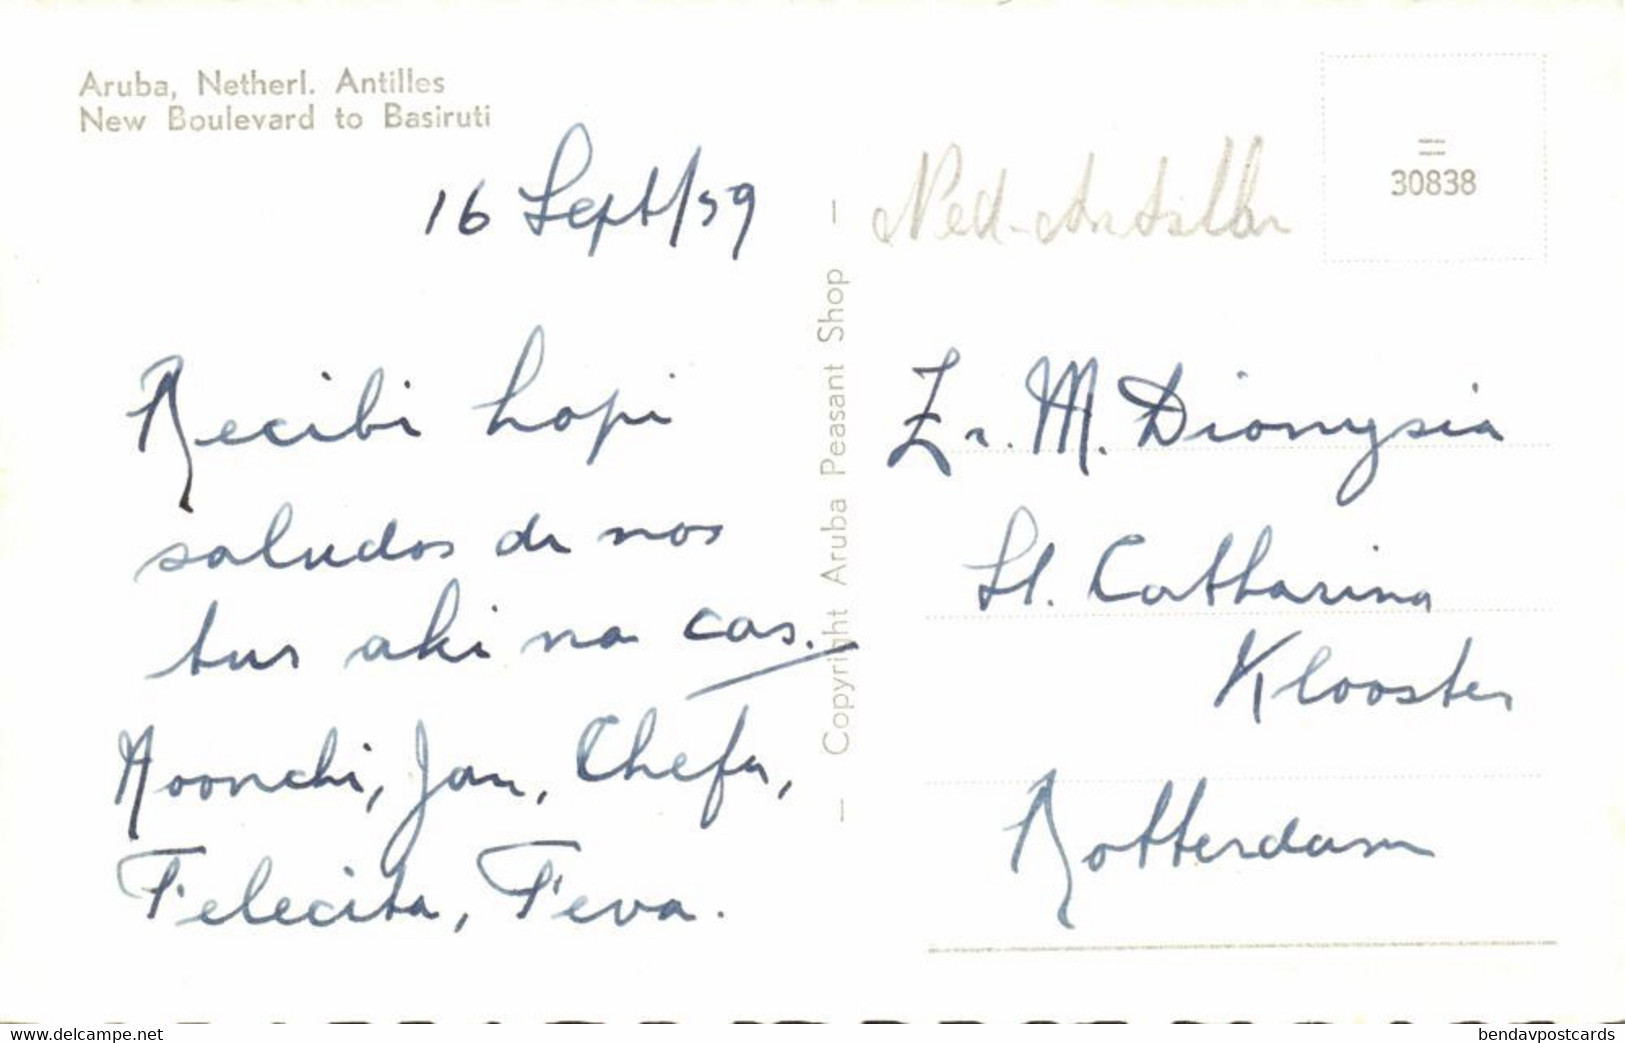 Aruba, Netherl. Antilles
New Boulevard to Basiruti
16 Sept/59
Recibi hopi
saludos di nos
tur aki na cas.
Moonchi, Jan, Chefa,
Felecita, Feva.
— Copyright Aruba Peasant Shop —
Ned-Antillen
30838
Zr. M. Dionysia
St. Catharina
Klooster
Rotterdam
www.delcampe.net
bendavpostcards